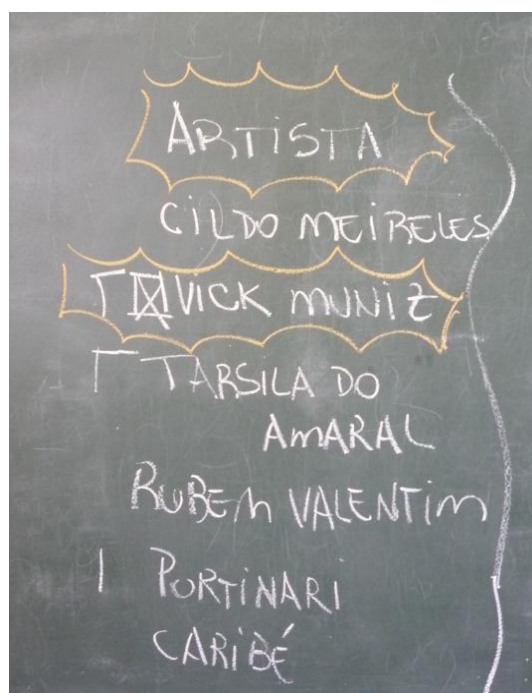 ARTISTA
CILDO MEIRELES
VICK MUNIZ
TARSILA DO
AMARAL
RUBEM VALENTIM
PORTINARI
CARIBÉ